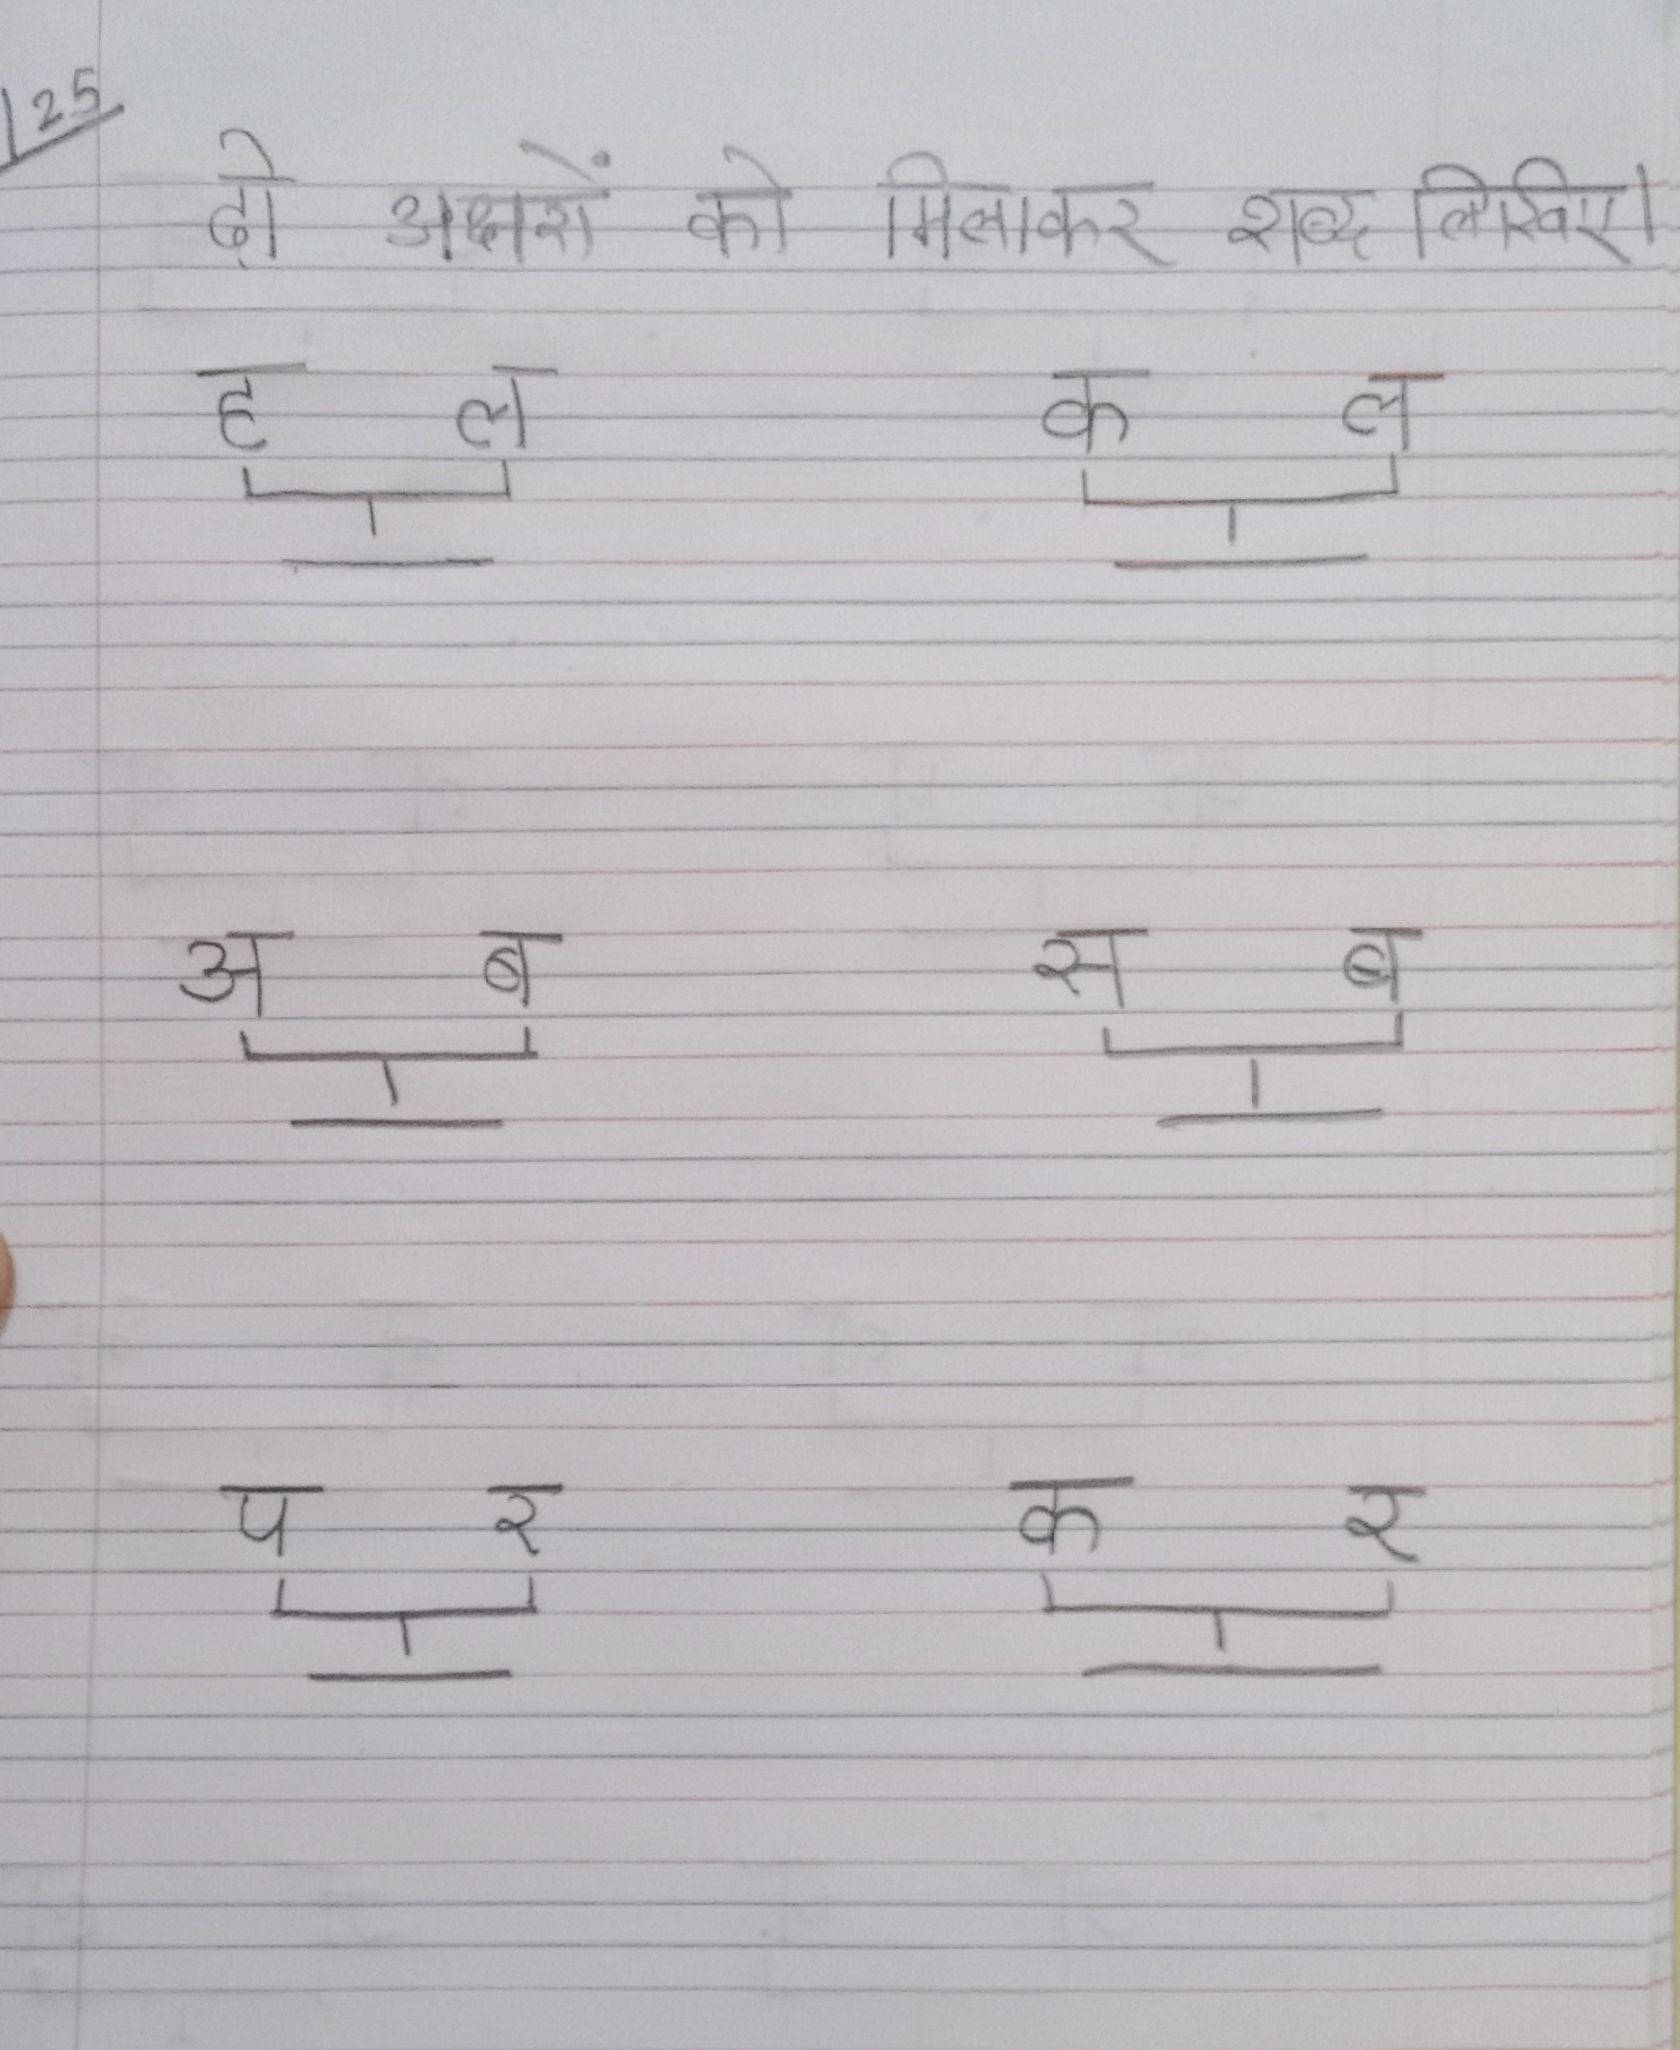 25
दो अक्षरों को मिलाकर शब्द लिखिए।
ह ल क ल
अ ब स ब
प र क र